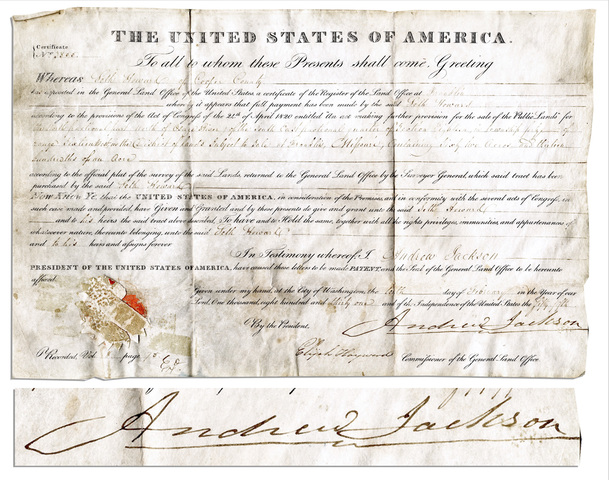 THE UNITED STATES OF AMERICA.
Certificate
No.
To all to whom these Presents shall come, Greeting
Whereas Howard of Cooper County
deposited in the General Land Office of the United States a certificate of the Register of the Land Office at Franklin
whereby it appears that full payment has been made by the said Howard
according to the provisions of the Act of Congress of the 24th of April 1820 entitled An act making further provision for the sale of the Public Lands for
the of the South East quarter of Section in Township of
range in the District of Lands Subject to Sale at Franklin Missouri, Containing Acres and
hundredths of an Acre
according to the official plat of the survey of the said Lands, returned to the General Land Office by the Surveyor General, which said tract has been
purchased by the said Howard
Now Know Ye, that the UNITED STATES OF AMERICA, in consideration of the Premises, and in conformity with the several acts of Congress, in
such case made and provided, have Given and Granted and by these presents do give and grant unto the said Howard
and to his heirs the said tract above described, To have and to Hold the same, together with all the rights, privileges, immunities, and appurtenances of
whatsoever nature, thereunto belonging, unto the said Howard
and to his heirs and assigns forever
In Testimony whereof I, Andrew Jackson
PRESIDENT OF THE UNITED STATES OF AMERICA, have caused these letters to be made PATENT, and the Seal of the General Land Office to be hereunto
affixed.
Given under my hand, at the City of Washington, the day of in the Year of our
Lord, One thousand, eight hundred and thirty one and of the Independence of the United States the fifty fifth
By the President.
Andrew Jackson
Elijah Hayward Commissioner of the General Land Office
Recorded, Vol. page
Andrew Jackson